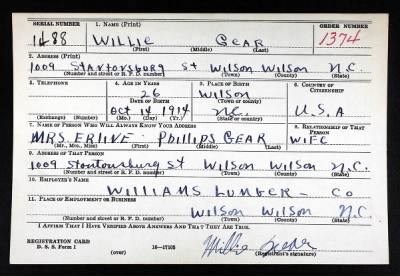 SERIAL NUMBER 1. NAME (Print) ORDER NUMBER
1488 WILLIE GEAR 1374
(First) (Middle) (Last)
2. ADDRESS (Print)
1009 Stantonsburg St Wilson Wilson N.C.
(Number and street or R. F. D. number) (Town) (County) (State)
3. TELEPHONE 4. AGE IN YEARS 5. PLACE OF BIRTH 6. COUNTRY OF CITIZENSHIP
26 Wilson
DATE OF BIRTH (Town or county)
Oct 14 1914 N.C. U.S.A
(Exchange) (Number) (Mo.) (Day) (Yr.) (State or country)
7. NAME OF PERSON WHO WILL ALWAYS KNOW YOUR ADDRESS 8. RELATIONSHIP OF THAT PERSON
MRS. ERLINE PHILLIPS GEAR WIFE
(Mr., Mrs., Miss) (First) (Middle) (Last)
9. ADDRESS OF THAT PERSON
1009 Stontonsburg St Wilson Wilson N.C.
(Number and street or R. F. D. number) (Town) (County) (State)
10. EMPLOYER'S NAME
WILLIAMS LUMBER - CO
11. PLACE OF EMPLOYMENT OR BUSINESS
Wilson Wilson N.C.
(Number and street or R. F. D. number) (Town) (County) (State)
I AFFIRM THAT I HAVE VERIFIED ABOVE ANSWERS AND THAT THEY ARE TRUE.
REGISTRATION CARD
D. S. S. Form 1 (over) 16—17105 Willie Gear
(Registrant's signature)